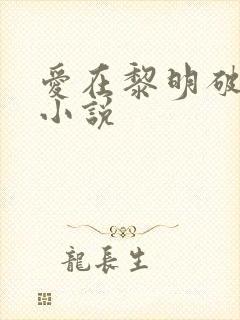 愛在黎明破
小說
龍長生